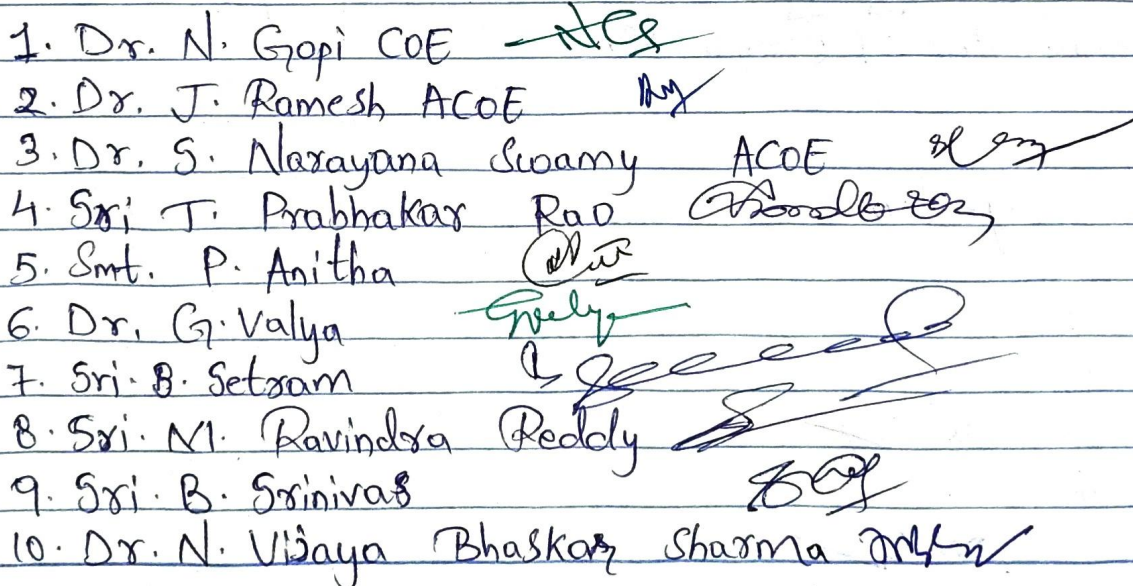 1. Dr. N. Gopi COE
2. Dr. J. Ramesh ACOE
3. Dr. S. Narayana Swamy ACOE
4. Sri T. Prabhakar Rao
5. Smt. P. Anitha
6. Dr. G. Valya
7. Sri. B. Setram
8. Sri. M. Ravindra Reddy
9. Sri. B. Srinivas
10. Dr. N. Vijaya Bhaskar Sharma